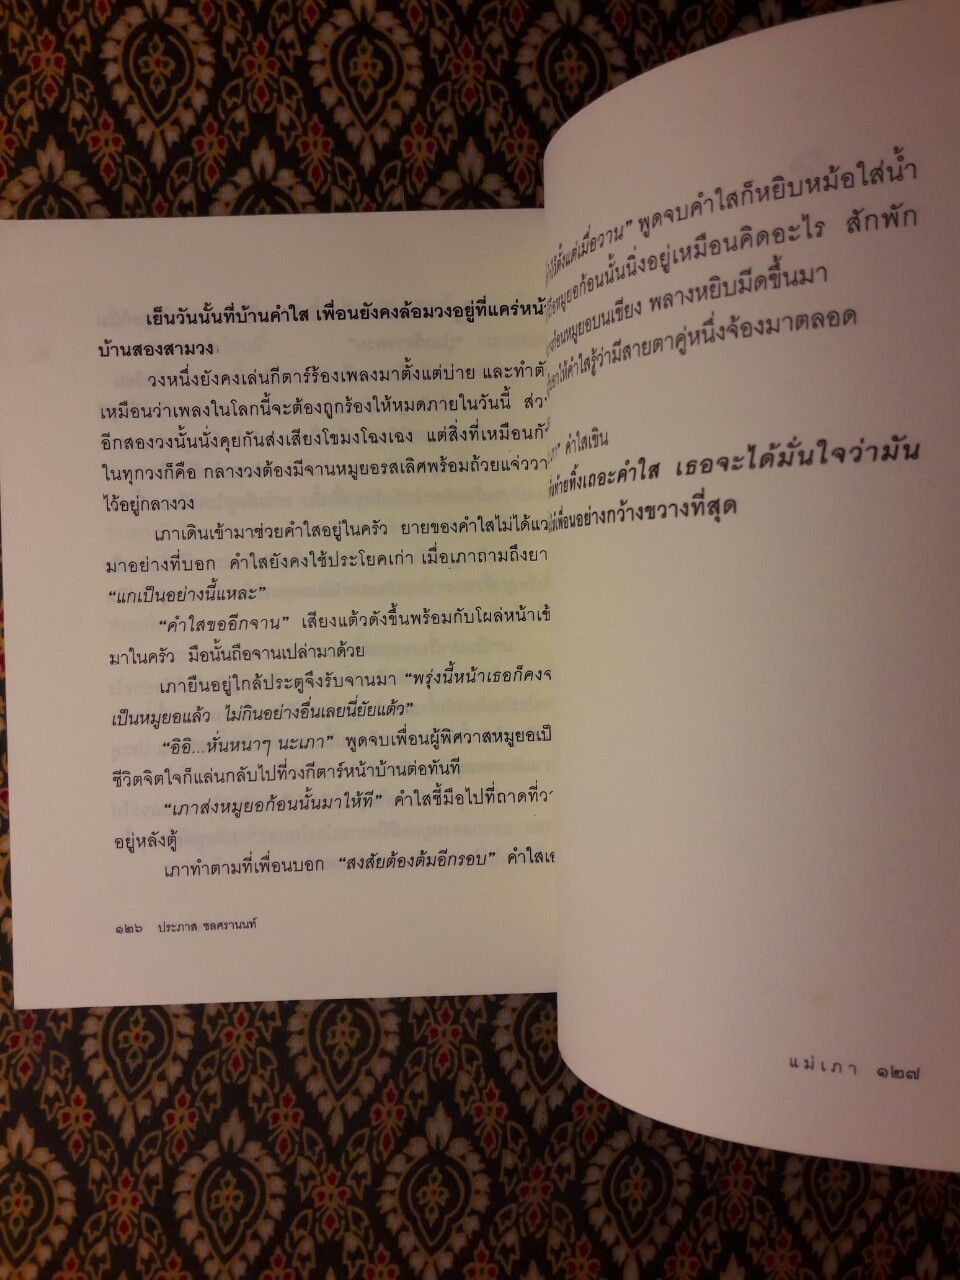 เย็นวันนั้นที่บ้านคำใส เพื่อนยังคงล้อมวงอยู่ที่แคร่หน้า
บ้านสองสามวง
วงหนึ่งยังคงเล่นกีตาร์ร้องเพลงมาตั้งแต่บ่าย และทำตั
เหมือนว่าเพลงในโลกนี้จะต้องถูกร้องให้หมดภายในวันนี้ ส่ว
อีกสองวงนั้นนั่งคุยกันส่งเสียงโขมงโฉงเฉง แต่สิ่งที่เหมือนกั
ในทุกวงก็คือ กลางวงต้องมีจานหมูยอรสเลิศพร้อมถ้วยแจ่ววา
ไว้อยู่กลางวง
เภาเดินเข้ามาช่วยคำใสอยู่ในครัว ยายของคำใสไม่ได้แว
มาอย่างที่บอก คำใสยังคงใช้ประโยคเก่า เมื่อเภาถามถึงยา
“แกเป็นอย่างนี้แหละ”
“คำใสขออีกจาน” เสียงแต้วดังขึ้นพร้อมกับโผล่หน้าเข้
มาในครัว มือนั้นถือจานเปล่ามาด้วย
เภายืนอยู่ใกล้ประตูจึงรับจานมา “พรุ่งนี้หน้าเธอก็คงจ
เป็นหมูยอแล้ว ไม่กินอย่างอื่นเลยนี่ยัยแต้ว”
“อิอิ...หั่นหนาๆ นะเภา” พูดจบเพื่อนผู้พิศวาสหมูยอเป็
ชีวิตจิตใจก็แล่นกลับไปที่วงกีตาร์หน้าบ้านต่อทันที
“เภาส่งหมูยอก้อนนั้นมาให้ที” คำใสชี้มือไปที่ถาดที่วา
อยู่หลังตู้
เภาทำตามที่เพื่อนบอก “สงสัยต้องต้มอีกรอบ” คำใสเอ
๑๒๖ ประภาส ชลศรานนท์
ไว้ตั้งแต่เมื่อวาน” พูดจบคำใสก็หยิบหม้อใส่น้ำ
หมูยอก้อนนั้นนิ่งอยู่เหมือนคิดอะไร สักพัก
ก้อนหมูยอบนเขียง พลางหยิบมีดขึ้นมา
ให้คำใสรู้ว่ามีสายตาคู่หนึ่งจ้องมาตลอด
คำใสเขิน
ทิ้งเถอะคำใส เธอจะได้มั่นใจว่ามัน
เพื่อนอย่างกว้างขวางที่สุด
แม่เภา ๑๒๗